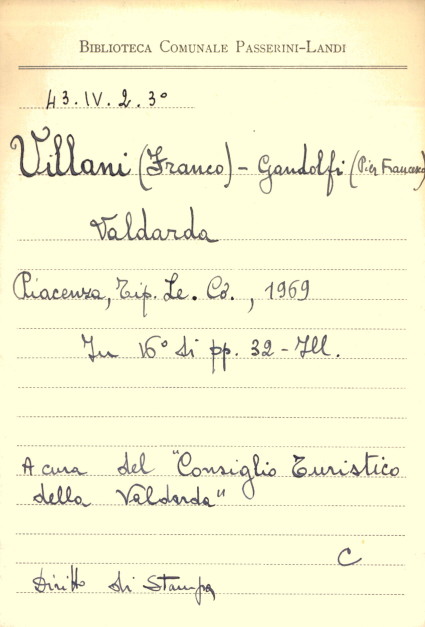 BIBLIOTECA COMUNALE PASSERINI-LANDI
43.IV.2.3°
Villani (Franco) - Gandolfi (Pier Francesco)
Valdarda
Piacenza, Tip. Le. Co., 1969
In 16° di pp. 32 - Ill.
A cura del "Consiglio Turistico
della Valdarda"
C
Diritto di Stampa